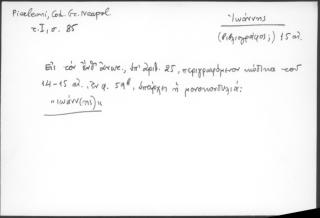 Pierleoni, Cat. Gr. Neapol.
τ. I, σ. 85
Ἰωάννης
(βιβλιογράφος;) 15 αἰ.
Εἰς τὸν ἔνθ' ἀνωτ., ὑπ' ἀριθ. 25, περιγραφόμενον κώδικα τοῦ
14-15 αἰ., ἐν φ. 59β, ὑπάρχει ἡ μονοκονδυλιά:
"Ἰωάνν(ης)"